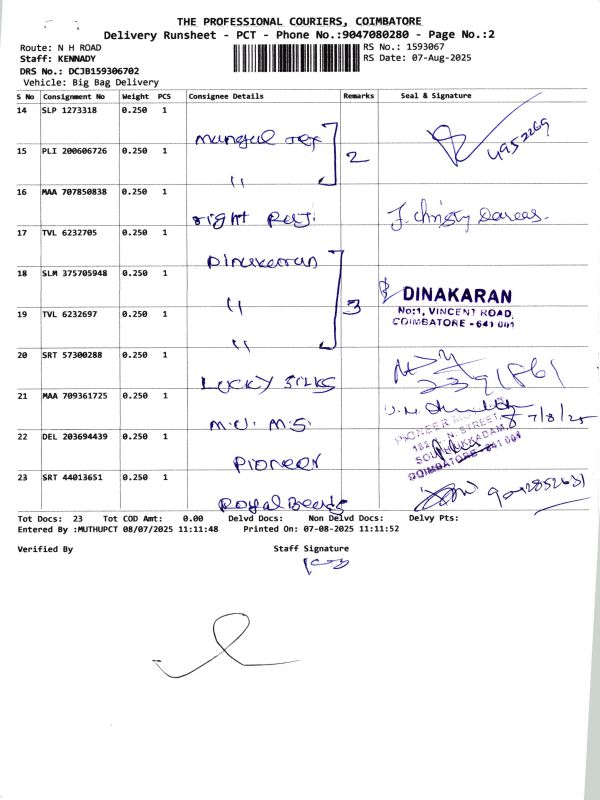 THE PROFESSIONAL COURIERS, COIMBATORE
Delivery Runsheet - PCT - Phone No.:9047080280 - Page No.:2
Route: N H ROAD
RS No.: 1593067
Staff: KENNADY
RS Date: 07-Aug-2025
DRS No.: DCJB159306702
Vehicle: Big Bag Delivery
S No Consignment No Weight PCS Consignee Details Remarks Seal & Signature
14 SLP 1273318 0.250 1
mangal Tex 4952269
15 PLI 200606726 0.250 1 2
"
16 MAA 707850838 0.250 1
right J. Christy
17 TVL 6232705 0.250 1
Dinakaran
18 SLM 375705948 0.250 1
" DINAKARAN
No:1, VINCENT ROAD,
COIMBATORE - 641 001
19 TVL 6232697 0.250 1 3
"
20 SRT 57300288 0.250 1
LUCKY SILKS
21 MAA 709361725 0.250 1
M.U.M.S. 7/8/25
22 DEL 203694439 0.250 1
Pioneer
PIONEER
N. STREET,
COIMBATORE - 641 001
23 SRT 44013651 0.250 1
Royal
Tot Docs: 23 Tot COD Amt: 0.00 Delvd Docs: Non Delvd Docs: Delvy Pts:
Entered By :MUTHUPCT 08/07/2025 11:11:48 Printed On: 07-08-2025 11:11:52
Verified By Staff Signature